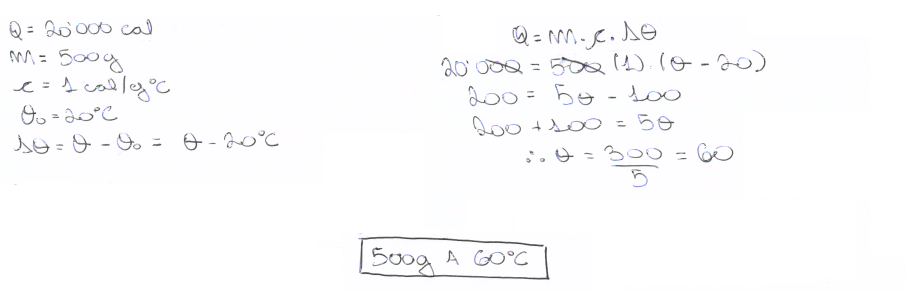 Q = 20'000 cal
m = 500g
c = 1 cal/g°C
θ₀ = 20°C
Δθ = θ - θ₀ = θ - 20°C
Q = m . c . Δθ
20'000 = 500 (1) . (θ - 20)
200 = 5θ - 100
200 + 100 = 5θ
∴ θ = 300/5 = 60
500g A 60°C